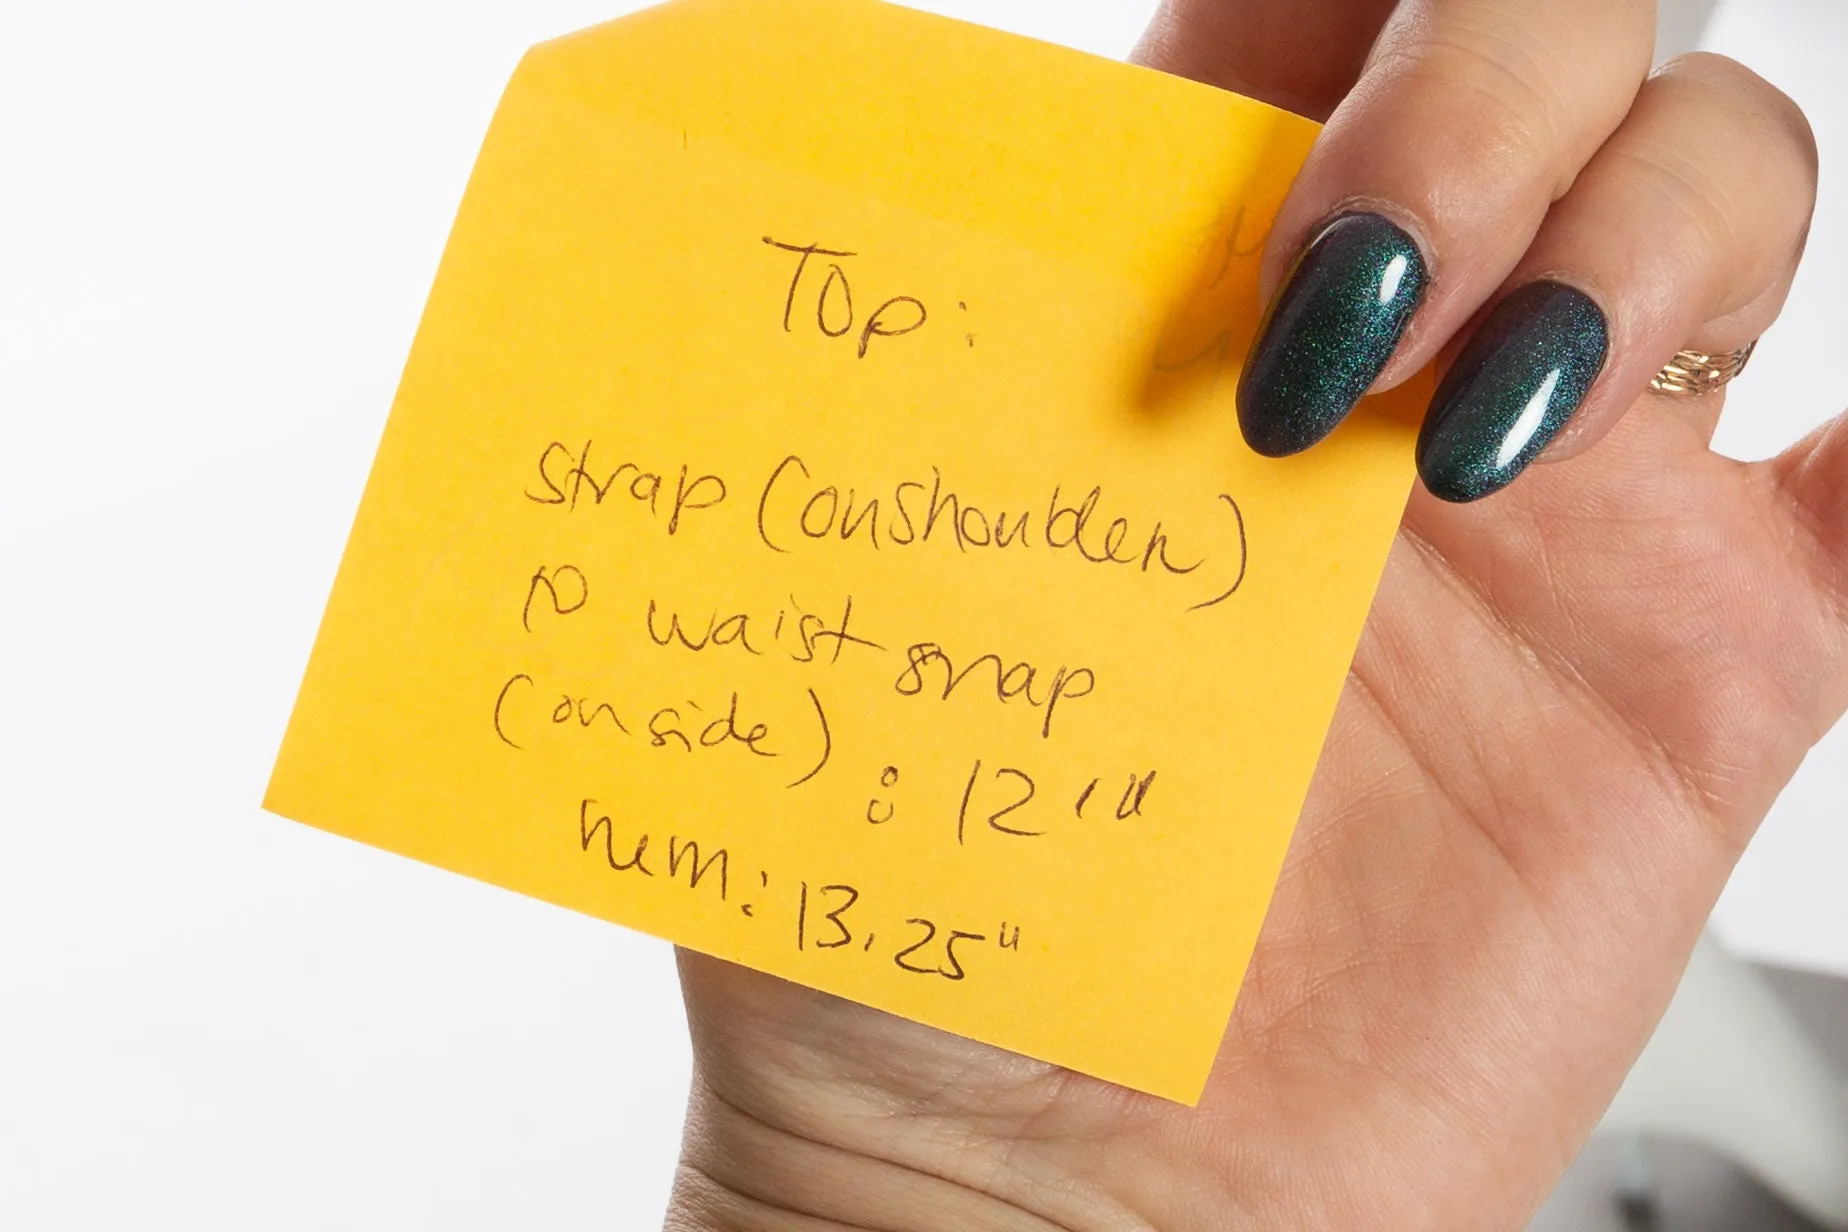 Top:
strap (on shoulder)
to waist snap
(on side) : 12 "
hem: 13.25"